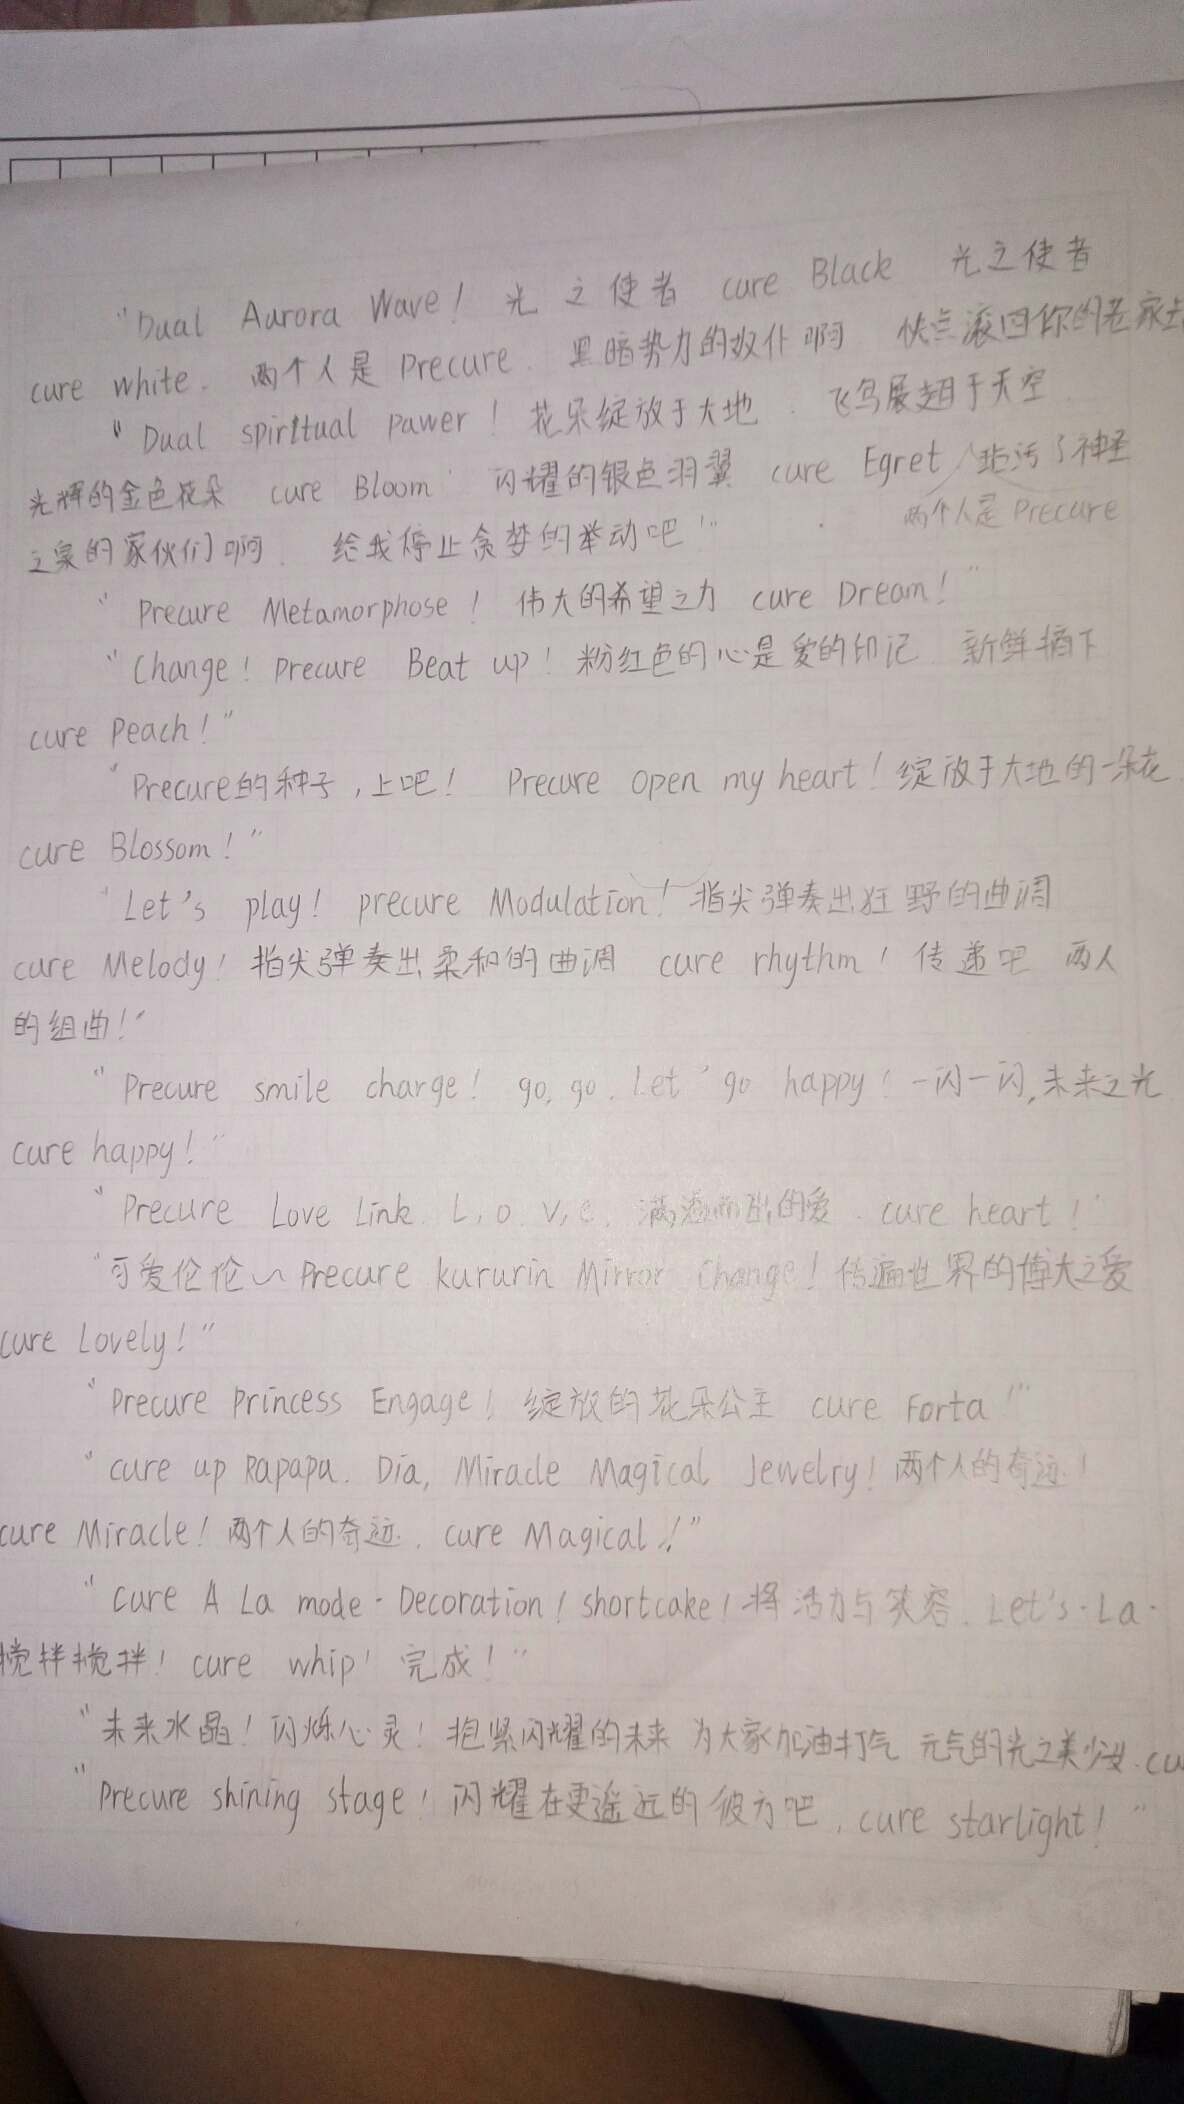 "Dual Aurora Wave! 光之使者 cure Black 光之使者
cure white. 两个人是 Precure. 黑暗势力的奴仆啊 快点滚回你的老家去
"Dual spiritual pawer! 花朵绽放于大地. 飞鸟展翅于天空.
光辉的金色花朵 cure Bloom 闪耀的银色羽翼 cure Egret 玷污了神圣
两个人是 Precure
之泉的家伙们啊. 给我停止贪婪的举动吧!"
"Precure Metamorphose! 伟大的希望之力 cure Dream!"
"Change! Precure Beat up! 粉红色的心是爱的印记 新鲜摘下
cure Peach!"
"Precure的种子,上吧! Precure open my heart! 绽放于大地的一朵花
cure Blossom!"
"Let's play! precure Modulation! 指尖弹奏出狂野的曲调
cure Melody! 指尖弹奏出柔和的曲调 cure rhythm! 传递吧 两人
的组曲!"
"Precure smile charge! go, go. Let' go happy! 一闪一闪,未来之光
cure happy!"
"Precure Love Link. L, o, v, e. 满溢而出的爱. cure heart!
"可爱伦伦~ Precure kururin Mirror Change! 传遍世界的博大之爱
cure Lovely!"
"Precure Princess Engage! 绽放的花朵公主 cure Forta!"
"cure up Rapapa. Dia, Miracle Magical Jewelry! 两个人的奇迹!
cure Miracle! 两个人的奇迹. cure Magical!"
"cure A La mode·Decoration! shortcake! 将活力与笑容. Let's·La·
搅拌搅拌! cure whip! 完成!"
"未来水晶! 闪烁心灵! 抱紧闪耀的未来 为大家加油打气 元气的光之美少女. cu
"Precure shining stage! 闪耀在更遥远的彼方吧, cure starlight!"